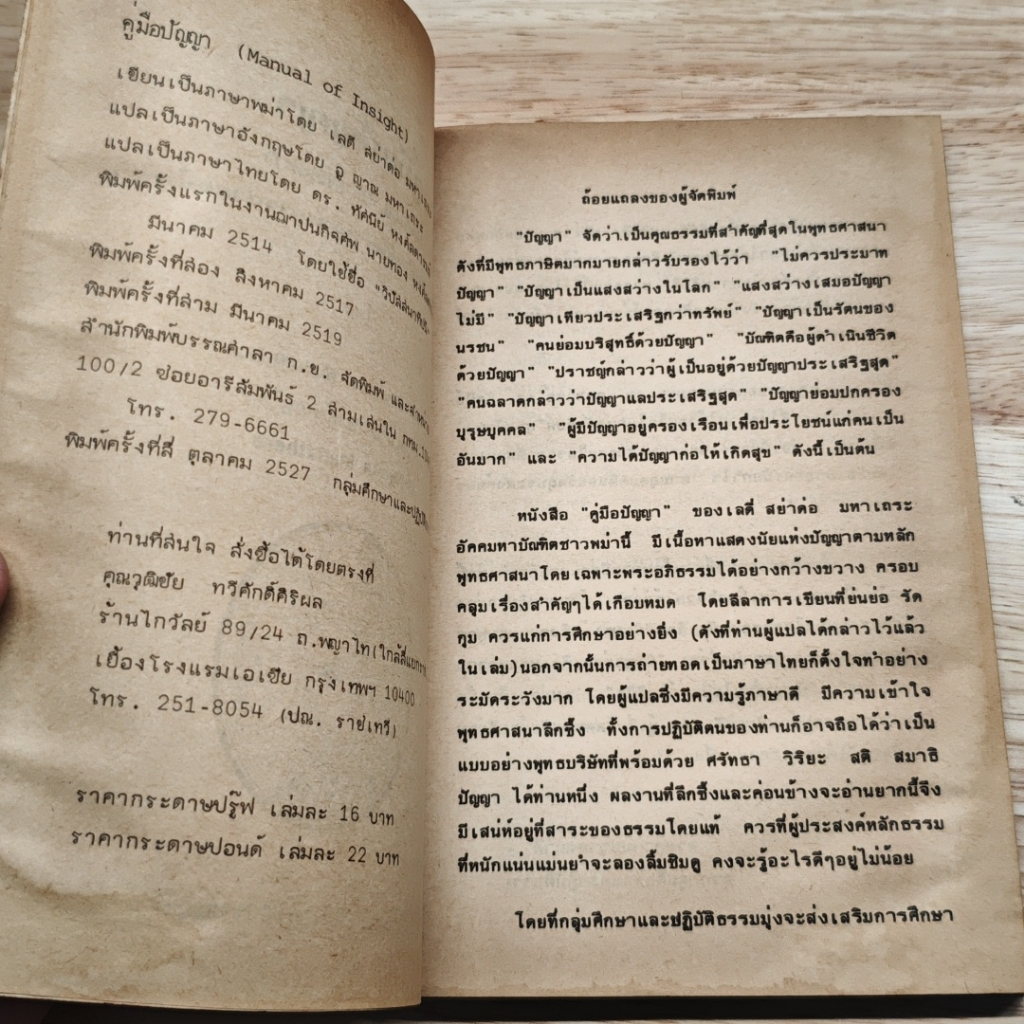 คู่มือปัญญา (Manual of Insight)
เขียนเป็นภาษาพม่าโดย เลดี สย่าด่อ มหาเถระ
แปลเป็นภาษาอังกฤษโดย อู ญาณ มหาเถระ
แปลเป็นภาษาไทยโดย ดร. ทัศนีย์
พิมพ์ครั้งแรกในงานฌาปนกิจศพ นายทอง
มีนาคม 2514 โดยใช้ชื่อ
พิมพ์ครั้งที่สอง สิงหาคม 2517
พิมพ์ครั้งที่สาม มีนาคม 2519
สำนักพิมพ์บรรณศาลา ก.ย. จัดพิมพ์
100/2 ซอยอารีสัมพันธ์ 2 สามเสนใน กทม.
โทร. 279-6661
พิมพ์ครั้งที่สี่ ตุลาคม 2527 กลุ่มศึกษาและ
ท่านที่สนใจ สั่งซื้อได้โดยตรงที่
คุณวุฒิชัย ทวีศักดิ์ศิริผล
ร้านไกวัลย์ 89/24 ถ.พญาไท(ใกล้สี่แยก
เยื้องโรงแรมเอเชีย กรุงเทพฯ 10400
โทร. 251-8054 (ปณ. ราชเทวี)
ราคากระดาษปรู๊ฟ เล่มละ 16 บาท
ราคากระดาษปอนด์ เล่มละ 22 บาท
ถ้อยแถลงของผู้จัดพิมพ์
"ปัญญา" จัดว่าเป็นคุณธรรมที่สำคัญที่สุดในพุทธศาสนา
ดังที่มีพุทธภาษิตมากมายกล่าวรับรองไว้ว่า "ไม่ควรประมาท
ปัญญา" "ปัญญาเป็นแสงสว่างในโลก" "แสงสว่างเสมอปัญญา
ไม่มี" "ปัญญาเทียวประเสริฐกว่าทรัพย์" "ปัญญาเป็นรัตนของ
นรชน" "คนย่อมบริสุทธิ์ด้วยปัญญา" "บัณฑิตคือผู้ดำเนินชีวิต
ด้วยปัญญา" "ปราชญ์กล่าวว่าผู้เป็นอยู่ด้วยปัญญาประเสริฐสุด"
"คนฉลาดกล่าวว่าปัญญาแลประเสริฐสุด" "ปัญญาย่อมปกครอง
บุรุษบุคคล" "ผู้มีปัญญาอยู่ครองเรือนเพื่อประโยชน์แก่คนเป็น
อันมาก" และ "ความได้ปัญญาก่อให้เกิดสุข" ดังนี้เป็นต้น
หนังสือ "คู่มือปัญญา" ของเลดี สย่าด่อ มหาเถระ
อัคคมหาบัณฑิตชาวพม่านี้ มีเนื้อหาแสดงนัยแห่งปัญญาตามหลัก
พุทธศาสนาโดยเฉพาะพระอภิธรรมได้อย่างกว้างขวาง ครอบ
คลุมเรื่องสำคัญๆได้เกือบหมด โดยลีลาการเขียนที่ย่นย่อ รัด
กุม ควรแก่การศึกษาอย่างยิ่ง (ดังที่ท่านผู้แปลได้กล่าวไว้แล้ว
ในเล่ม)นอกจากนั้นการถ่ายทอดเป็นภาษาไทยก็ตั้งใจทำอย่าง
ระมัดระวังมาก โดยผู้แปลซึ่งมีความรู้ภาษาดี มีความเข้าใจ
พุทธศาสนาลึกซึ้ง ทั้งการปฏิบัติตนของท่านก็อาจถือได้ว่าเป็น
แบบอย่างพุทธบริษัทที่พร้อมด้วย ศรัทธา วิริยะ สติ สมาธิ
ปัญญา ได้ท่านหนึ่ง ผลงานที่ลึกซึ้งและค่อนข้างจะอ่านยากนี้จึง
มีเสน่ห์อยู่ที่สาระของธรรมโดยแท้ ควรที่ผู้ประสงค์หลักธรรม
ที่หนักแน่นแม่นยำจะลองลิ้มชิมดู คงจะรู้อะไรดีๆอยู่ไม่น้อย
โดยที่กลุ่มศึกษาและปฏิบัติธรรมมุ่งจะส่งเสริมการศึกษา